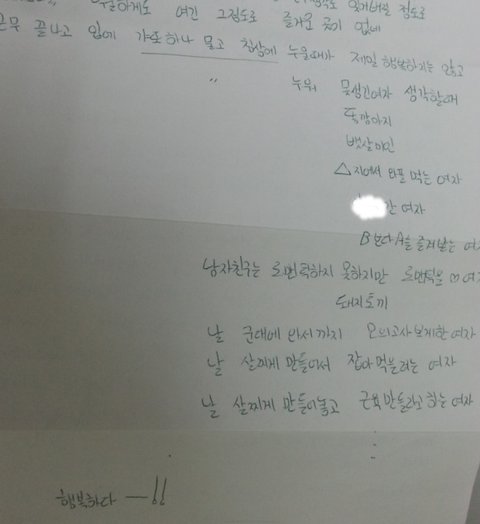 여긴 그정도로 즐거운 곳이 없네
근무 끝나고 입에 하나 물고 침상에 누울때가 제일 행복하지는 않고
〃 누워 못생긴여자 생각할때
똥강아지
뱃살미인
△지에서 와플 먹는 여자
간 여자
B보다 A를 즐겨보는 여
남자친구는 로맨틱하지 못하지만 로맨틱을 여
돼지토끼
날 군대에 와서까지 모의고사보게한 여자
날 살찌게 만들어서 잡아먹을려는 여자
날 살찌게 만들어놓고 근육만들라고하는 여자
행복하다 —!!